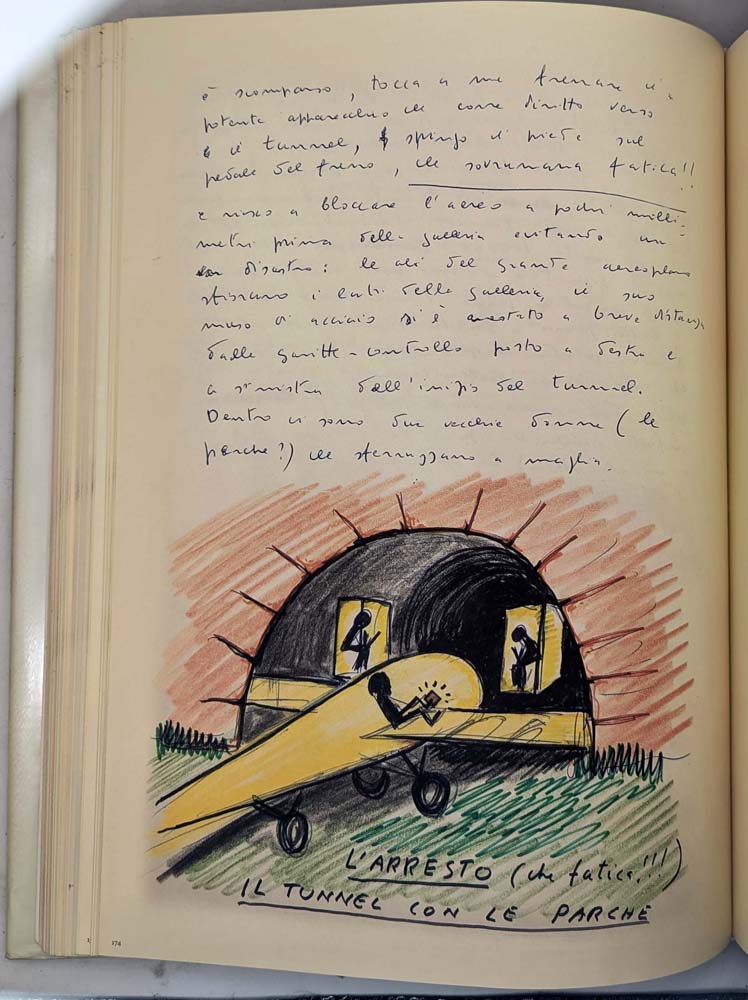 è scomparso, tocca a me frenare il
potente apparecchio che corre diritto verso
il tunnel, spingo il piede sul
pedale del freno, che sovrumana fatica!!
e riesco a bloccare l'aereo a pochi milli-
metri prima della galleria evitando un
disastro: le ali del grande aeroplano
i lati della galleria, il suo
muso di acciaio si è arrestato a breve distanza
dalle garitte-controllo poste a destra e
a sinistra dall'inizio del tunnel.
Dentro ci sono due vecchie donne (le
parche?) che sferruzzano a maglia.
L'ARRESTO (che fatica!!!)
IL TUNNEL CON LE PARCHE
174